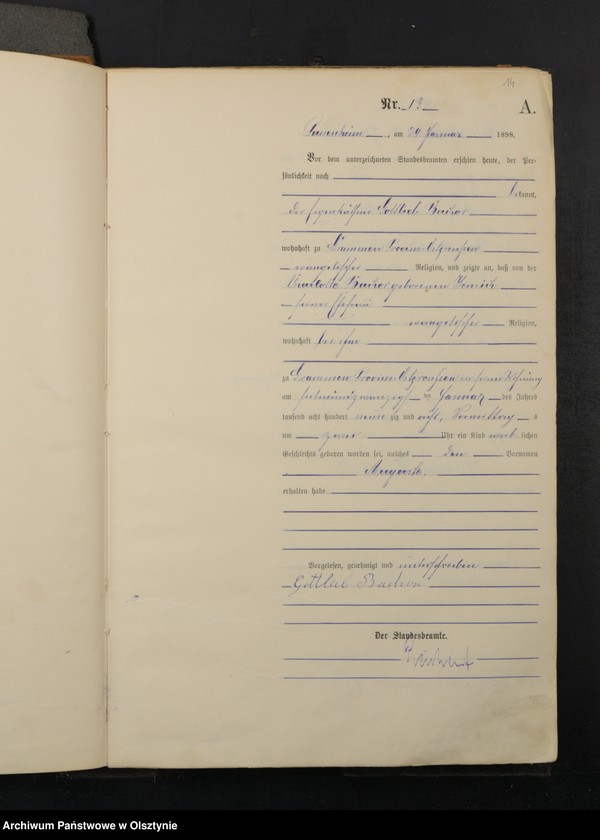 14
Nr. 13
A.
am 29 Januar 1898.
Vor dem unterzeichneten Standesbeamten erschien heute, der Per-
sönlichkeit nach
bekannt,
der Eigenkäthner Gottlieb
wohnhaft zu Provinz Ostpreussen
evangelischer Religion, und zeigte an, daß von der
Charlotte geborenen
seiner Ehefrau
evangelischer Religion,
wohnhaft bei ihm
zu Provinz Ostpreussen in seiner Wohnung
am siebenundzwanzigsten Januar des Jahres
tausend acht hundert neun zig und acht, Vormittags
um zwei Uhr ein Kind weib lichen
Geschlechts geboren worden sei, welches den Vornamen
Auguste.
erhalten habe
Vorgelesen, genehmigt und unterschrieben
Gottlieb
Der Standesbeamte.
Archiwum Państwowe w Olsztynie